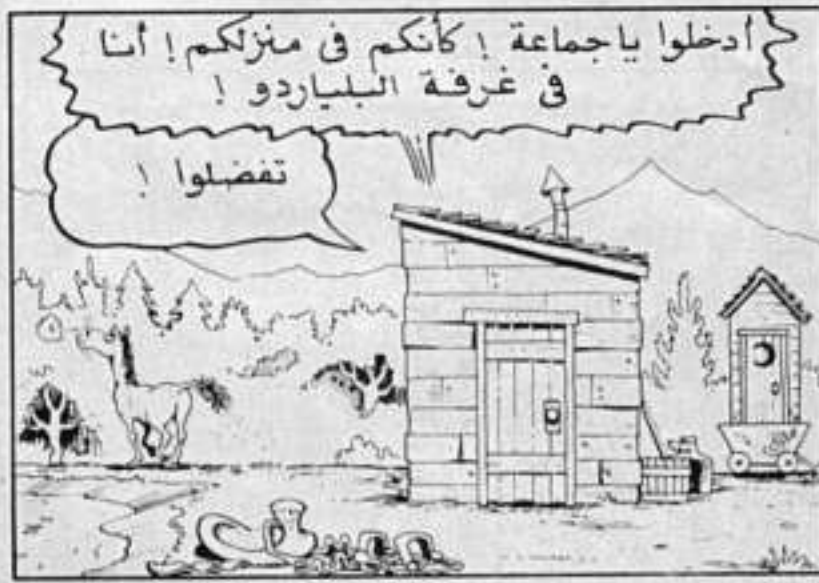 أدخلوا ياجماعة ! كأنكم فى منزلكم ! أنا
فى غرفة البلياردو !
تفضلوا !